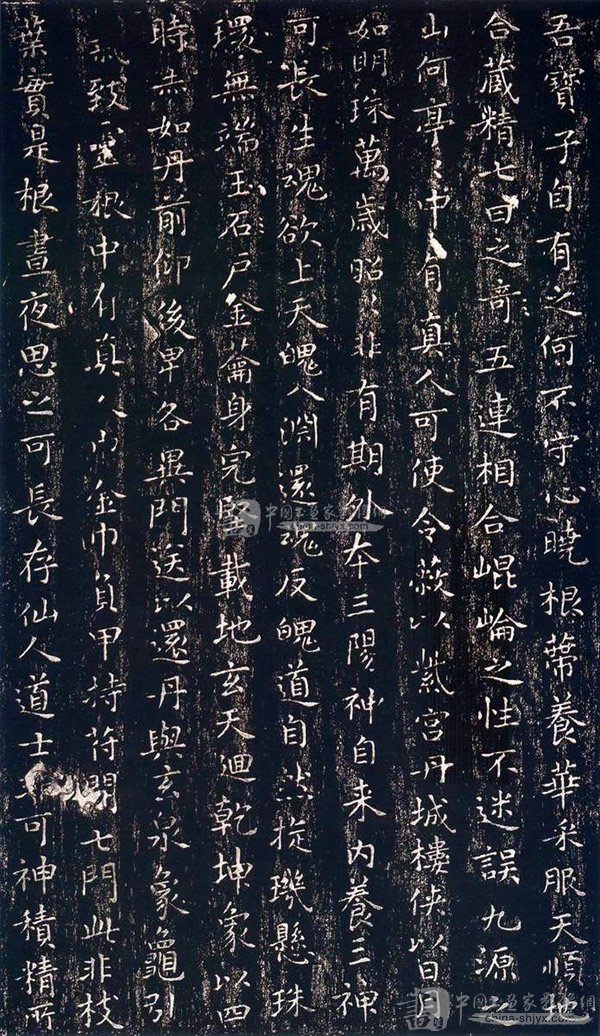 吾寶子自有之何不守心曉根蔕養華采服天順地
合藏精七日之奇五連相合崐崘之性不迷誤九源
山何亭〻中有真人可使令蔽以紫宮丹城樓侠以日月
如明珠萬歲昭〻非有期外夲三陽神自来内養三神
可長生魂欲上天魄入淵還魂反魄道自然璣懸珠
環無端玉石戶金籥身完堅載地玄天迴乾坤象以四
時赤如丹前仰後卑各異門送以還丹與玄泉象龜引
氣致靈根中有真人巾金巾負甲持符開七門此非枝
葉實是根晝夜思之可長存仙人道士非可神積精所
china-shjyx.com